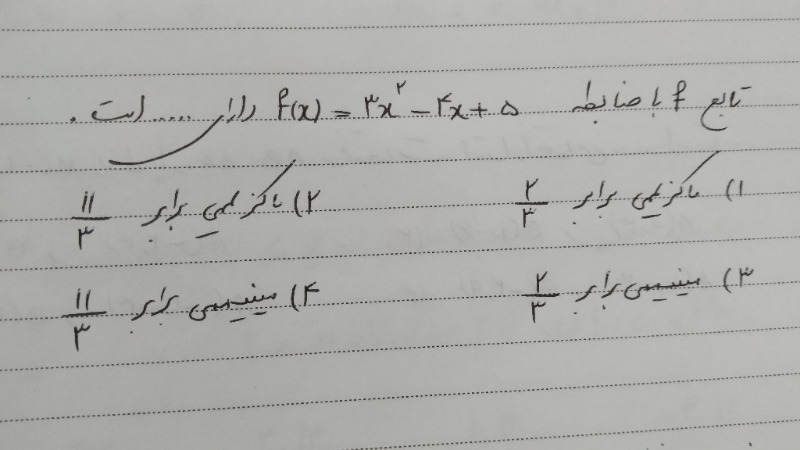 تابع f با ضابطه f(x) = ۳x² - ۴x + ۵ دارای ..... است .
۱) ماکزیممی برابر ۲/۳ ۲) ماکزیممی برابر ۱۱/۳
۳) مینیممی برابر ۲/۳ ۴) مینیممی برابر ۱۱/۳